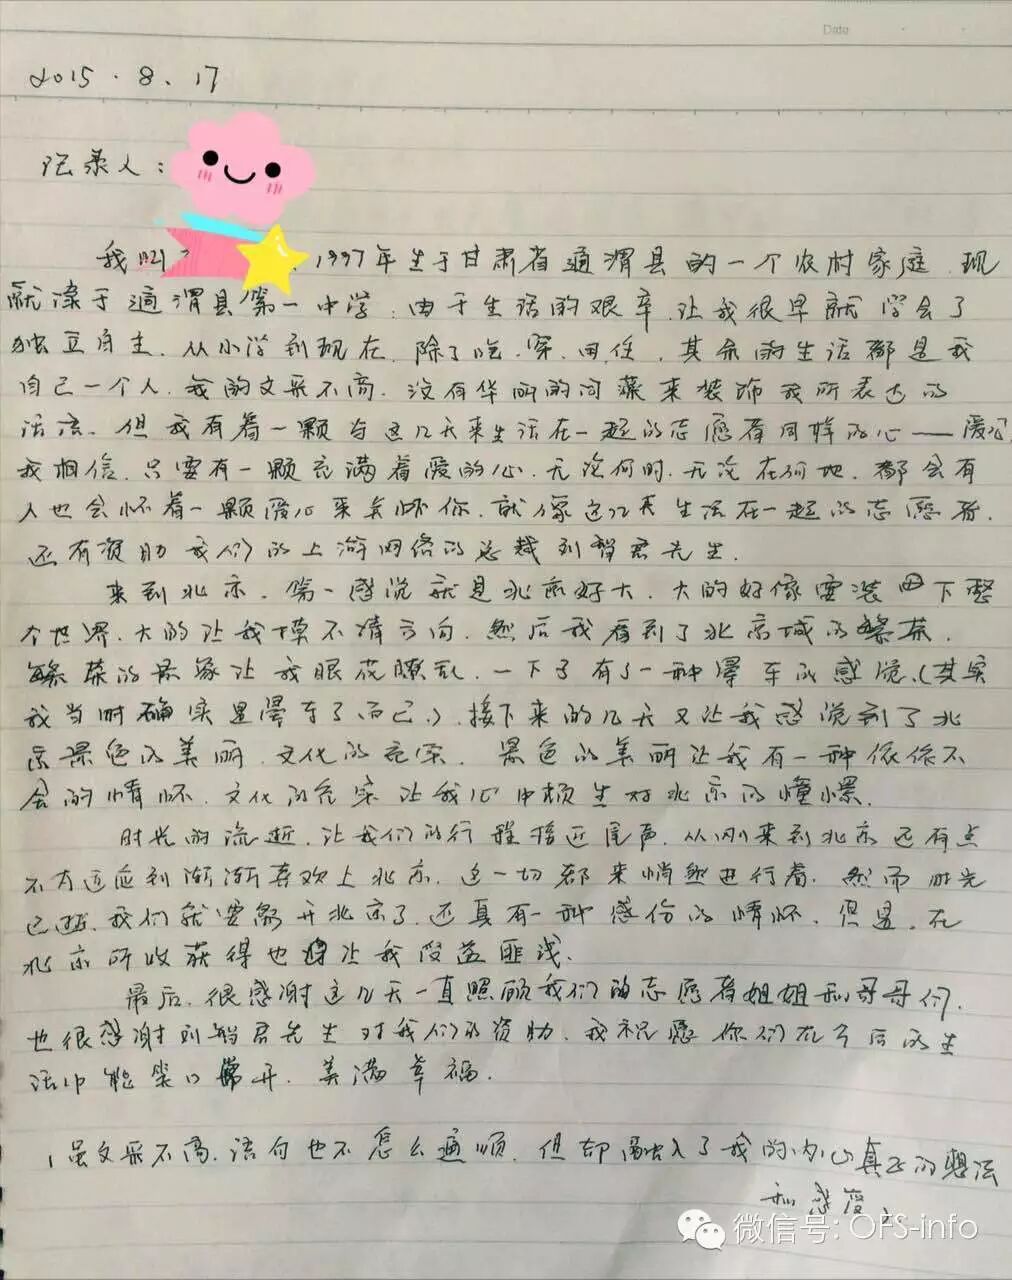 Date
2015.8.17
记录人:
我叫 1997年生于甘肃省通渭县的一个农村家庭.现
就读于通渭县第一中学.由于生活的艰辛.让我很早就学会了
独立自主.从小学到现在.除了吃.穿.住.其余的生活都是我
自己一个人.我的文采不高.没有华丽的词藻来装饰我所表达的
话语.但我有着一颗与这几天来生活在一起的志愿者同样的心——爱心
我相信.只要有一颗充满着爱的心.无论何时.无论在何地.都会有
人也会怀着一颗爱心来关怀你.就像这几天生活在一起的志愿者.
还有资助我们的上游网络的总裁刘智君先生.
来到北京.第一感觉就是北京好大.大的好像要装下整
个世界.大的让我摸不清方向.然后我看到了北京城的繁荣.
繁荣的景象让我眼花瞭乱.一下子有了一种晕车的感觉.(其实
我当时确实是晕车了而已.).接下来的几天又让我感觉到了北
京景色的美丽.文化的充实.景色的美丽让我有一种依依不
舍的情怀.文化的充实让我心中顿生对北京的憧憬.
时光的流逝.让我们的行程接近尾声.从刚来到北京还有点
不大适应到渐渐喜欢上北京.这一切都来悄然进行着.然而时光
已逝.我们就要离开北京了.还真有一种感伤的情怀.但是.在
北京所收获得也让我受益匪浅.
最后.很感谢这几天一直照顾我们的志愿者姐姐和哥哥们.
也很感谢刘智君先生对我们的资助.我祝愿你们在今后的生
活中能笑口常开.美满幸福.
虽文采不高.语句也不怎么通顺.但却融入了我的内心真正的想法
和感受
微信号: OFS-info